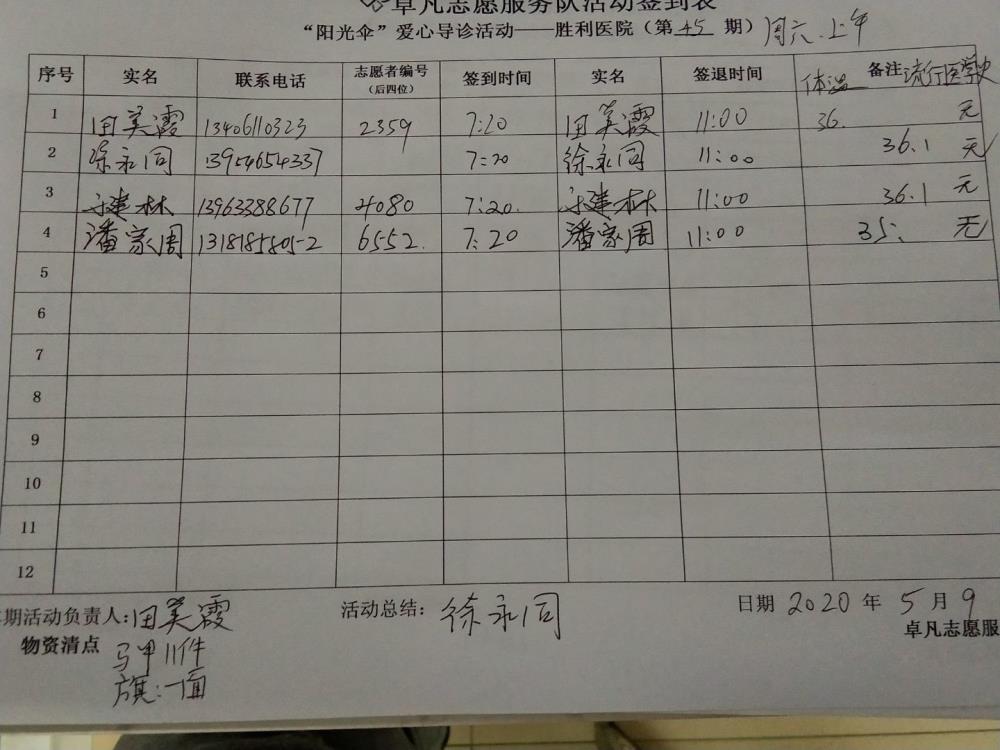 卓凡志愿服务队活动签到表
“阳光伞”爱心导诊活动——胜利医院（第 45 期） 周六.上午
序号 实名 联系电话 志愿者编号（后四位） 签到时间 实名 签退时间 体温 备注 流行医学史
1 田美霞 13406110323 2359 7:20 田美霞 11:00 36. 无
2 徐永同 13954654337 7:20 徐永同 11:00 36.1 无
3 建林 13963388677 4080 7:20. 建林 11:00 36.1 无
4 潘家周 13181858052 6552. 7:20 潘家周 11:00 35. 无
5
6
7
8
9
10
11
12
期活动负责人:田美霞 活动总结: 徐永同 日期 2020 年 5 月 9
物资清点 马甲11件 卓凡志愿服
旗:一面